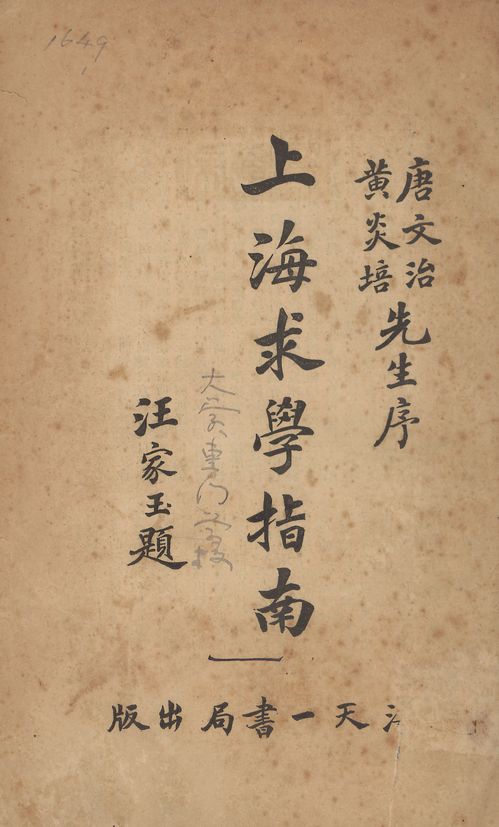 1649
唐文治
黃炎培
先生序
上海求學指南
大学專門学校
汪家玉題
天一書局出版